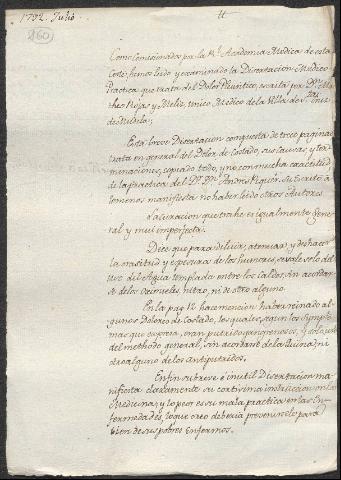 1792. Julio
160
Como Comisionados por la Rl. Academia Medica de esta
Corte, hemos leido y examinado la Disertacion Medico
Practica que trata del Dolor Pleuritico, escrita por Dn.
Rojas y Meliz, Unico Medico de la Villa de
de Nubela;
Esta breve Disertacion compuesta de trece paginas
trata en general del Dolor de Costado, sus causas y ter-
minaciones, copiado todo, y no con mucha exactitud
de la practica del Dr. Dn. Andres Piquer. Su Escrito à
lo menos manifiesta no haber leido otros Autores.
La curacion que trahe es igualmente gene-
ral y mui imperfecta.
Dice que para diluir, atenuar, y deshacer
la crasitud y espesura de los humores, se vale solo del
uso del Agua templada entre los caldos, sin acordar-
se de los Oximieles, nitro, ni de otro alguno.
En la pag. 12 hace mencion haber reinado al-
gunos Dolores de Costado, los quales, segun los Sympto-
mas que exponia, eran putrido gangrenosos, y solo usó
del methodo general, sin acordarse de la Quina, ni
otro alguno de los antiputridos.
En fin su breve é inutil Disertacion ma-
nifiesta claramente su cortisima instruccion en la
Medicina; y lo peor es su mala practica en las En-
fermedades, lo que creo deberia prevenirselo para
bien de sus pobres Enfermos.